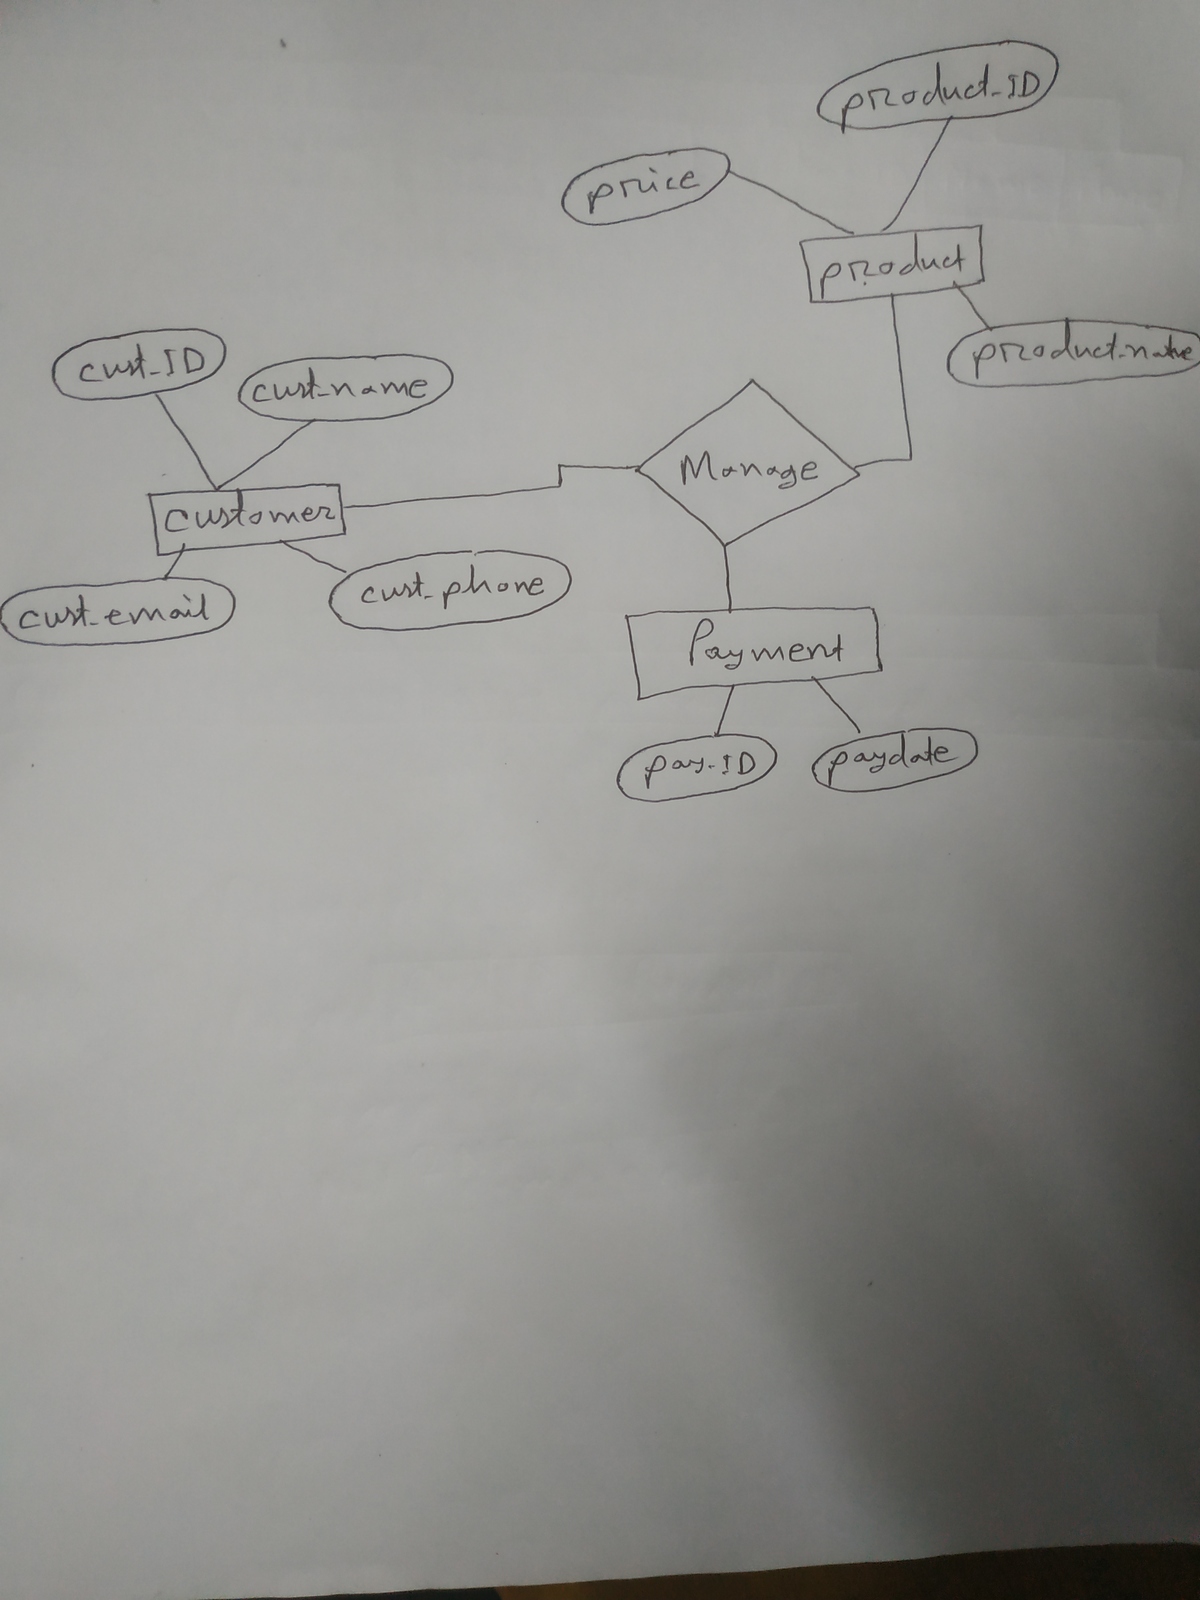 product_ID
price
product
product_name
cust_ID
cust_name
Manage
customer
cust_email
cust_phone
Payment
pay_ID
paydate